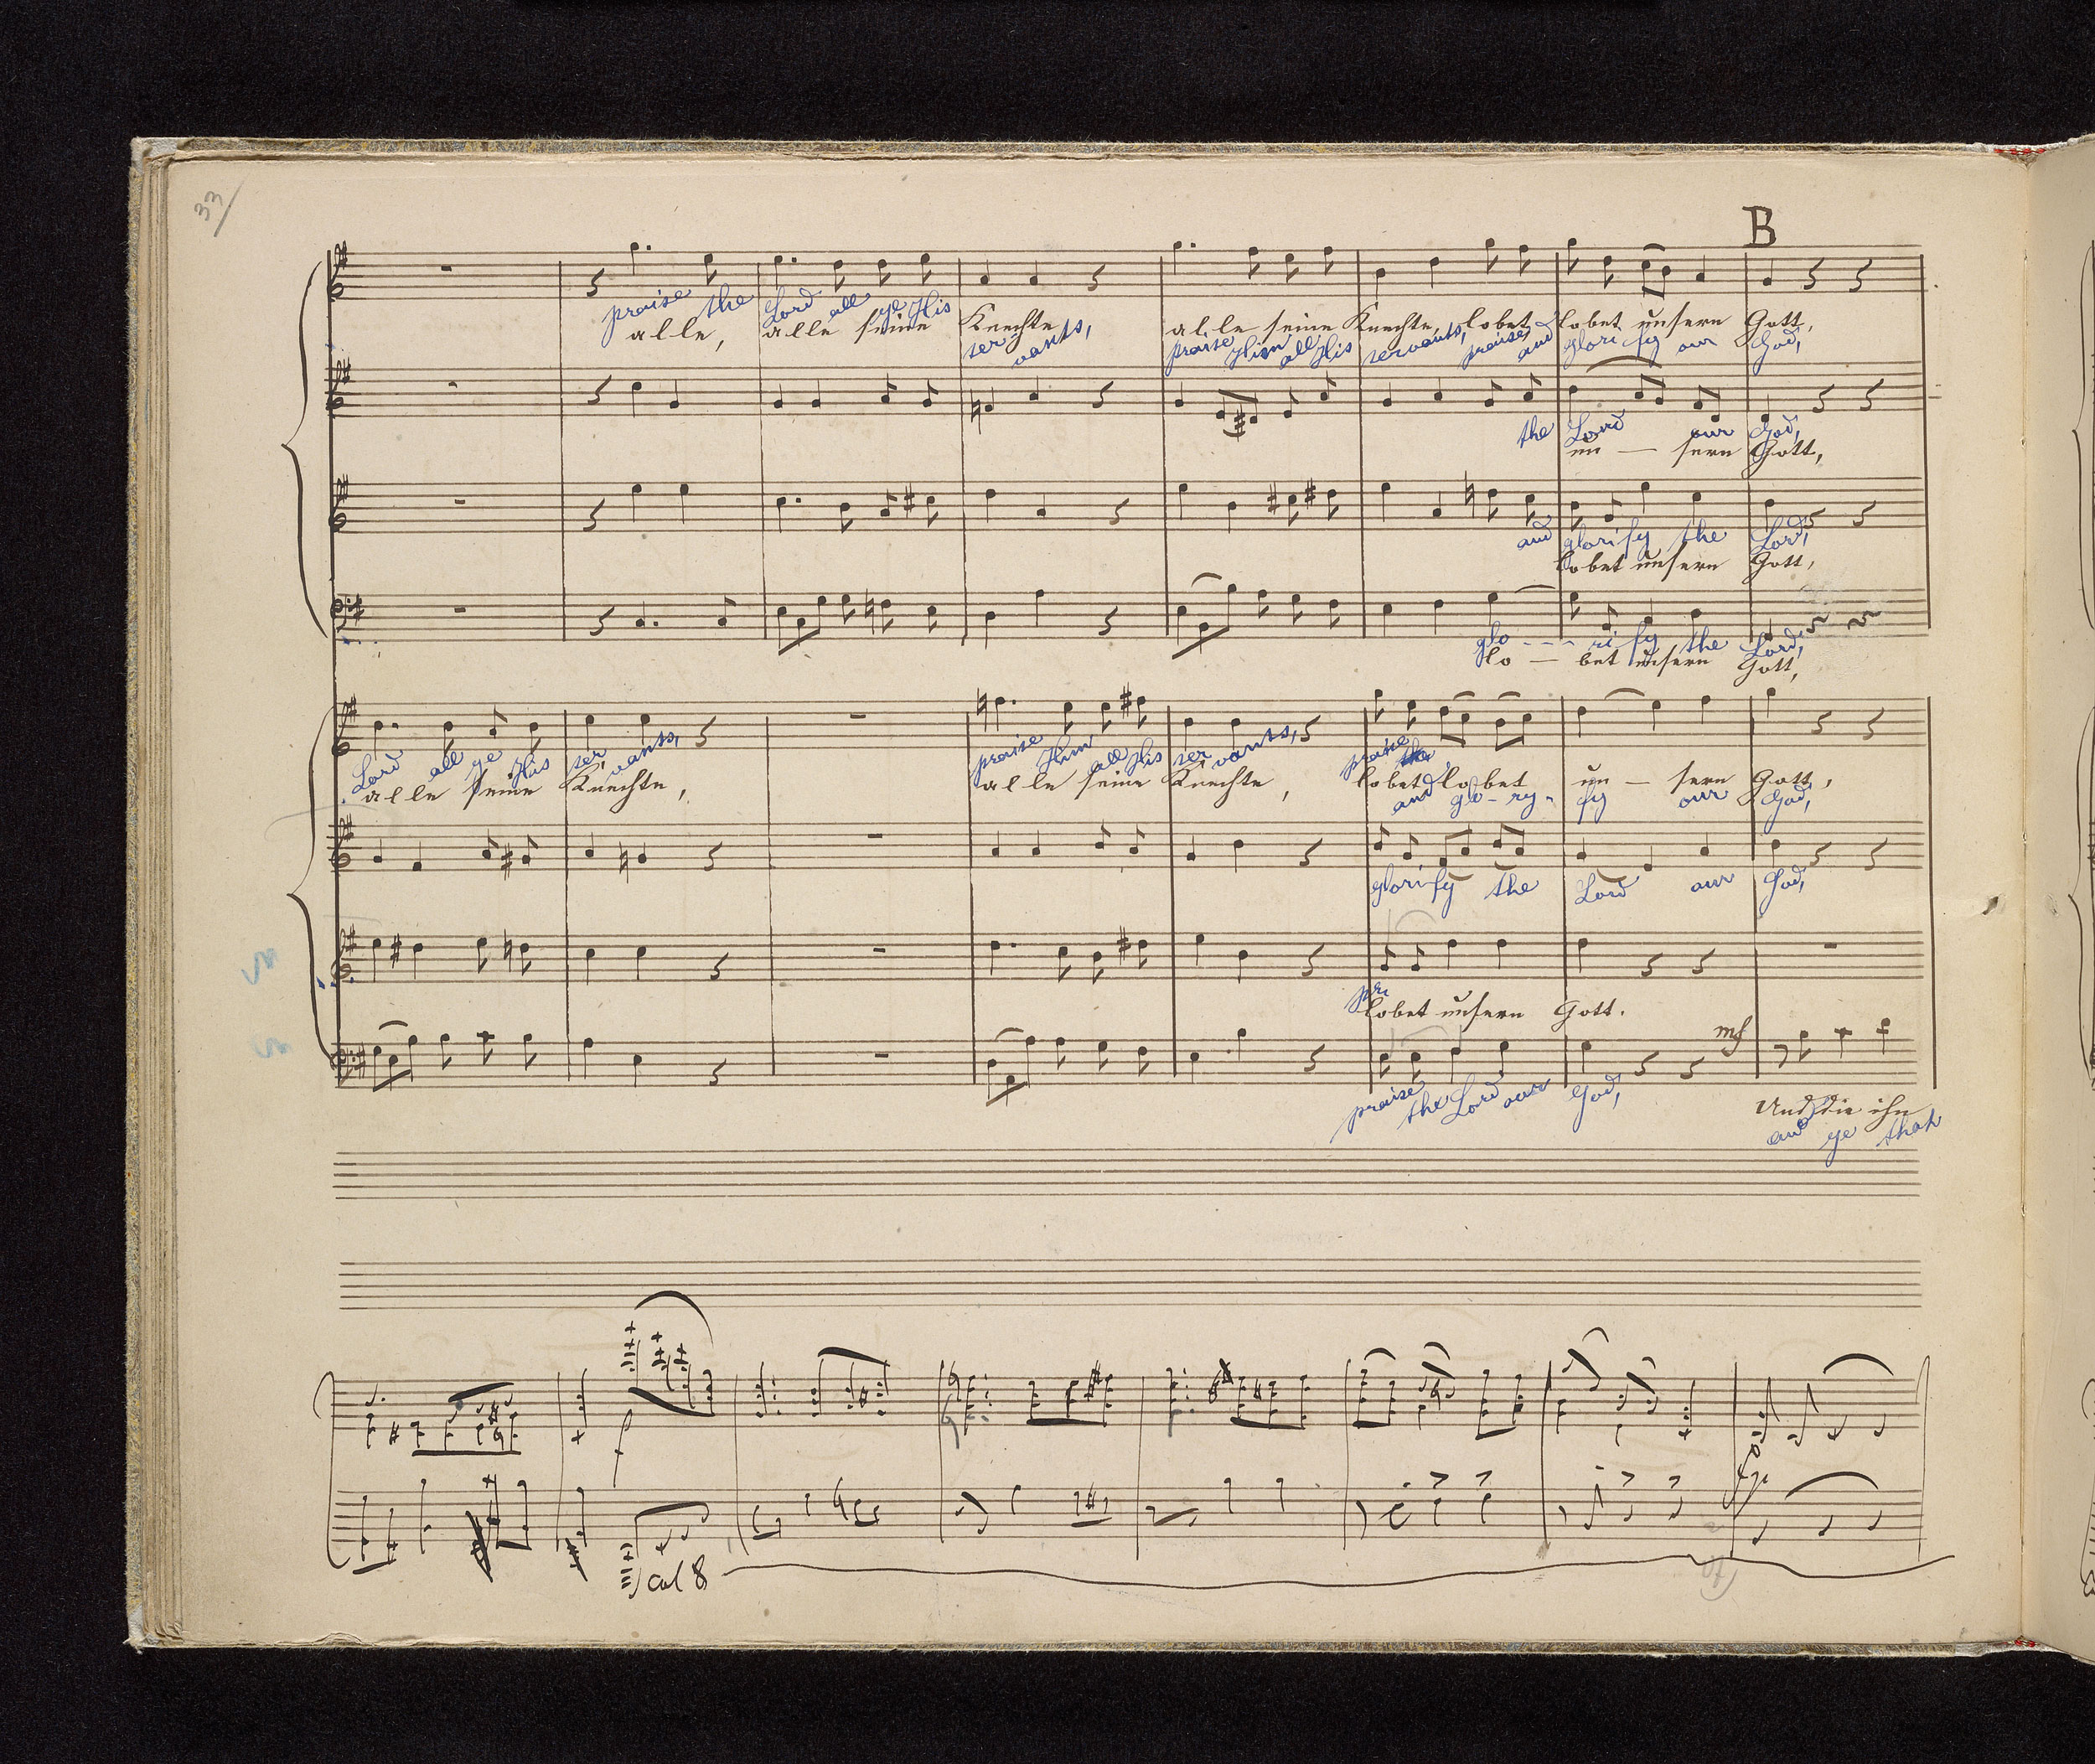 33/
B
praise the Lord all ye His
alle, alle seine Knechte, alle seine Knechte, lobet lobet unsern Gott,
servants, praise Him all His servants, praise and glorify our God,
the Lord our God,
un — sern Gott,
and glorify the Lord,
lobet unsern Gott,
glo - - - rify the Lord,
lo — bet unsern Gott,
Lord all ye His servants, praise Him all His servants, praise the
alle seine Knechte, alle seine Knechte, lobet lobet un — sern Gott,
and glo-ry-fy our God,
glorify the Lord our God,
lobet unsern Gott.
mf
praise the Lord our God,
Und die ihn
and ye that
f
col 8